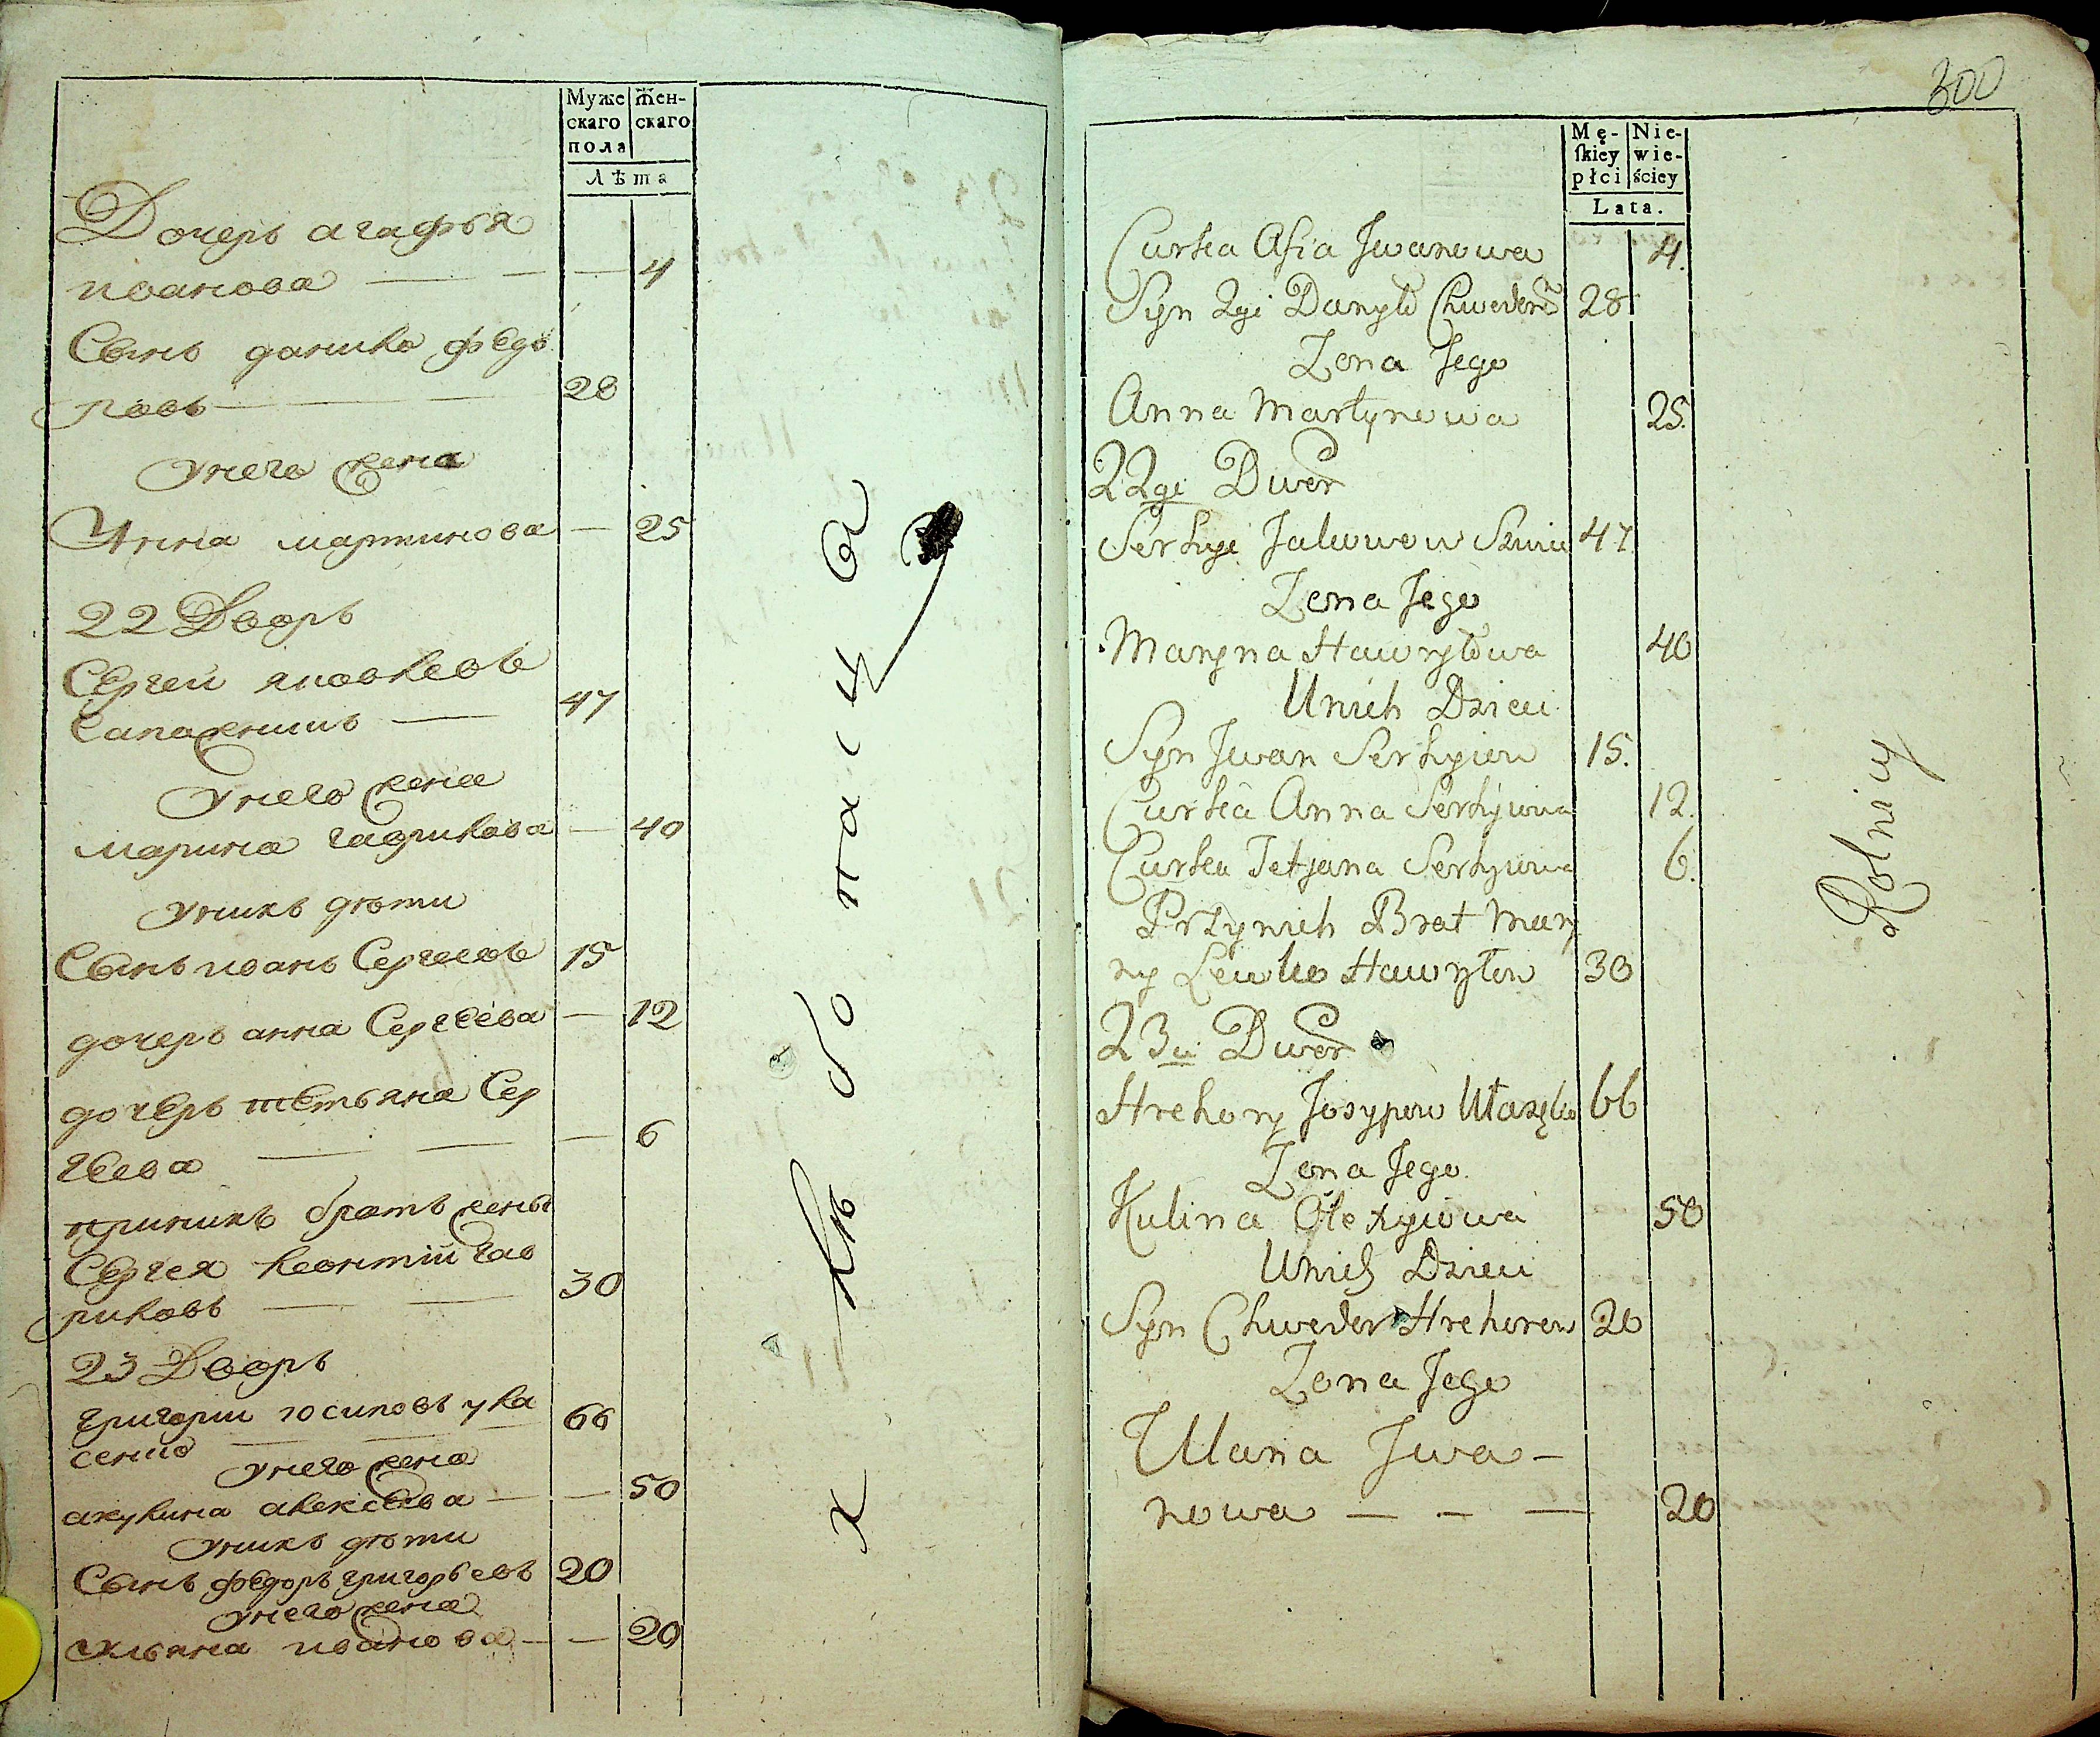 Муже
скаго
пола
Жен-
скаго
Лѣта
Дочерь агафья
иванова — — — 4
Сынъ данило федо
ровъ — — 28
Унего жена
Анна мартинова — 25
22 Дворъ
Сергей яковлевъ
47
Унего жена
марина гаврилова — 40
Унихъ дѣти
Сынъ иванъ Сергеевъ 15
дочерь анна Сергеева — 12
дочерь тетьяна Сер
геева — — — 6
принихъ братъ жены
Сергея леонтий гав
риловъ — — 30
23 Дворъ
григории иосиповъ ула
сенко — — 66
Унего жена
акулина алексеева — — 50
Унихъ дѣти
Сынъ федоръ григорьевъ 20
Унего жена
ульяна иванова — — 20
хлѣбопашца
300
Mę-
skiey
płci
Nie-
wie-
ściey
Lata.
Curka Afia Jwanowa 4.
Syn 2gi Danyło Chwedorow 28
Zona Jego
Anna Martynowa 25.
22gi Dwor
Serhyi Jakowow 47
Zona Jego
Maryna Hawryłowa 40
Unich Dzieci
Syn Jwan Serhyiow 15.
Curka Anna Serhyiowa 12.
Curka Tetjana Serhyiowa 6.
Przynich Brat Mary
ny Lewko Hawryłow 30
23ci Dwor
Hrehory Josypow Ułasęko 66
Zona Jego.
Kulina Olexyiowa 50
Unich Dzieci
Syn Chwedor Hrehorow 20
Zona Jego
Ulana Jwa-
nowa — — — 20
Rolnicy